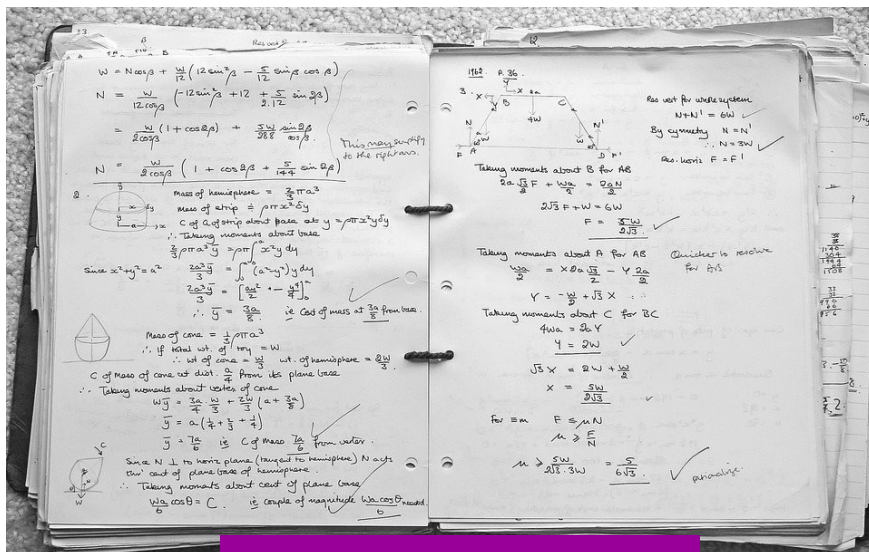 W = Ncosβ + W/12 (12 sin²β - 5/12 sinβ cosβ)
N = W/12cosβ (-12sin²β + 12 + 5/2.12 sin 2β)
= W/2cosβ (1 + cos2β) + 5W/288 sin2β/cosβ.
This may simplify
to the right ans.
N = W/2cosβ (1 + cos2β + 5/144 sin 2β)
2.
Mass of hemisphere = 2/3 πa³
Mass of strip = ρπx²δy
C of G of strip about base at y = ρπx²yδy
∴ Taking moments about base
2/3 ρπa³ȳ = ρπ∫x²y dy
Since x²+y² = a²
2a³ȳ/3 = ∫(a²-y²) y dy
2a³ȳ/3 = [ay²/2 - y⁴/4]
∴ ȳ = 3a/8. ie Cent of mass at 3a/8 from base.
Mass of cone = 1/3 ρπa³
∴ If total wt. of toy = W
∴ wt of cone = W/3 wt. of hemisphere = 2W/3.
C of Mass of cone at dist. a/4 from its plane base
∴ Taking moments about vertex of cone
Wȳ = 3a/4 . W/3 + 2W/3 (a + 3a/8)
ȳ = a(1/4 + 2/3 + 1/4)
ȳ = 7a/6 ie C of mass 7a/6 from vertex.
Since N ⊥ to horiz plane (tangent to hemisphere) N acts
thro' cent of plane base of hemisphere.
∴ Taking moments about cent of plane base
Wa/6 cosθ = C. ie couple of magnitude Wa cosθ/6 needed.
12.
1962. P. 36.
3.
Res vert for whole system
N+N' = 6W
By symmetry N = N'
∴ N = 3W
Res. horiz F = F'
Taking moments about B for AB
2a √3/2 F + Wa/2 = 2aN/2
2√3 F + W = 6W
F = 5W/2√3.
Taking moments about A for AB
Quicker to resolve
for AB
Wa/2 = X 2a √3/2 - Y 2a/2
Y = -W/2 + √3 X
Taking moments about C for BC
4Wa = 2a Y
Y = 2W
√3 X = 2W + W/2
X = 5W/2√3
For ≡m F ≤ μN
μ ≥ F/N
μ ≥ 5W/2√3.3W = 5/6√3.
rationalise.